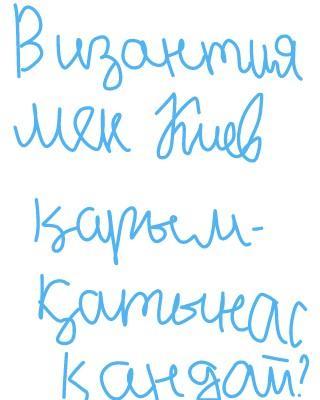 Византия
мен Киев
қарым-
қатынас
қандай?